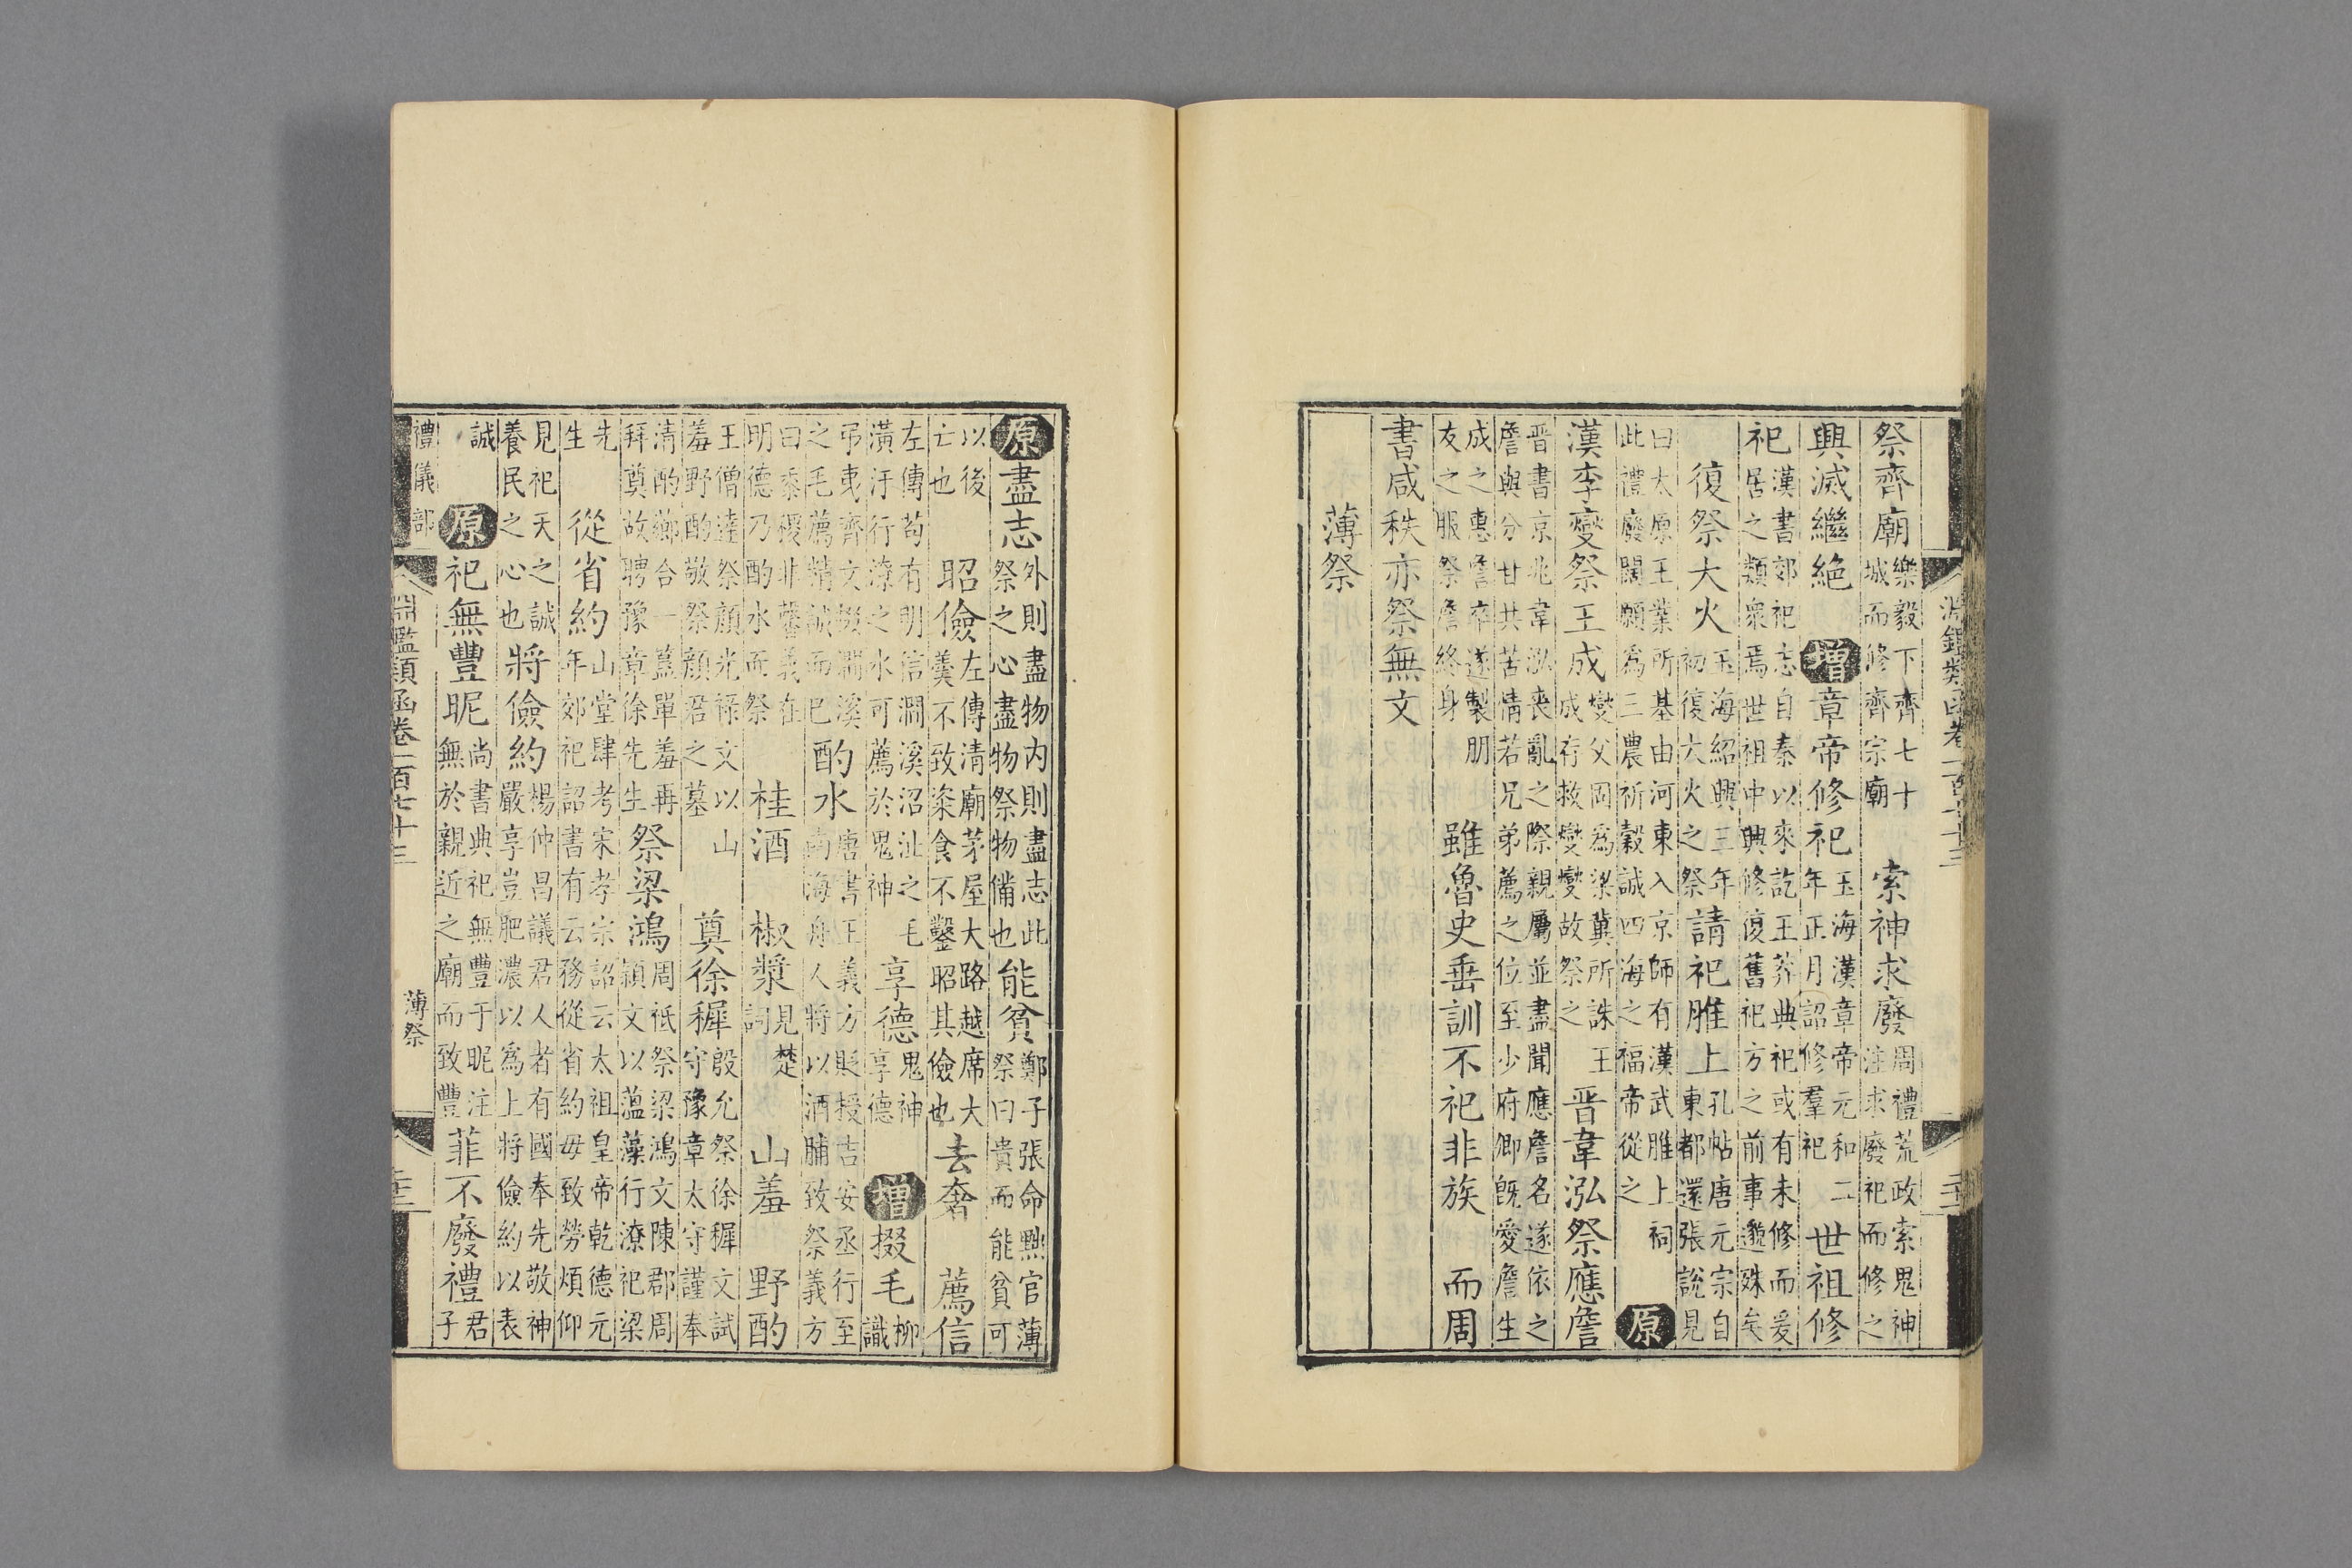 淵鑑類函卷一百七十三
祭齊廟樂毅下齊七十城而修齊宗廟　索神求廢周禮荒政索鬼神注求廢祀而修之
興滅繼絕　增章帝修祀玉海漢章帝元和二年正月詔修羣祀　世祖修
祀漢書郊祀志自秦以來訖王莽典祀或有未修而爰居之類衆焉世祖中興修復舊祀方之前事邈殊矣
復祭大火玉海紹興三年初復大火之祭　請祀脽上孔帖唐元宗自東都還張說見
曰太原王業所基由河東入京師有漢武脽上祠此禮廢闕願爲三農祈穀誠四海之福帝從之　原
漢李燮祭王成燮父固爲梁冀所誅王成存救燮燮故祭之　晉韋泓祭應詹
晉書京兆韋泓喪亂之際親屬並盡聞應詹名遂依之詹與分甘共苦情若兄弟薦之位至少府卿旣愛詹生
成之惠詹卒遂製朋友之服祭詹終身　雖魯史垂訓不祀非族　而周
書咸秩亦祭無文
薄祭
原盡志外則盡物内則盡志此祭之心盡物祭物備也　能貧鄭子張命黜官薄祭曰貴而能貧可
以後亡也　昭儉左傳清廟茅屋大路越席大羹不致粢食不鑿昭其儉也　去奢　薦信
左傳苟有明信澗溪沼沚之毛潢汙行潦之水可薦於鬼神　享德鬼神享德　增掇毛柳識
弔夷齊文掇澗溪之毛薦精誠而已　酌水唐書王義方貶授吉安丞行至南海舟人將以酒脯致祭義方
曰黍稷非馨義在明德乃酌水而祭　桂酒　椒漿見楚詞　山羞　野酌
王僧達祭顏光祿文以山羞野酌敬祭顏君之墓　奠徐穉殷允祭徐穉文試守豫章太守謹奉
清酌薌合一簋單羞再拜奠故聘豫章徐先生　祭梁鴻周祗祭梁鴻文陳郡周穎文以蘊藻行潦祀梁
先生　從省約山堂肆考宋孝宗詔云太祖皇帝乾德元年郊祀詔書有云務從省約毋致勞煩仰
見祀天之誠養民之心也　將儉約楊仲昌議君人者有國奉先敬神嚴享豈肥濃以爲上將儉約以表
誠　原祀無豐昵尚書典祀無豐于昵注無於親近之廟而致豐　菲不廢禮君子
禮儀部　淵鑑類函卷一百七十三　薄祭